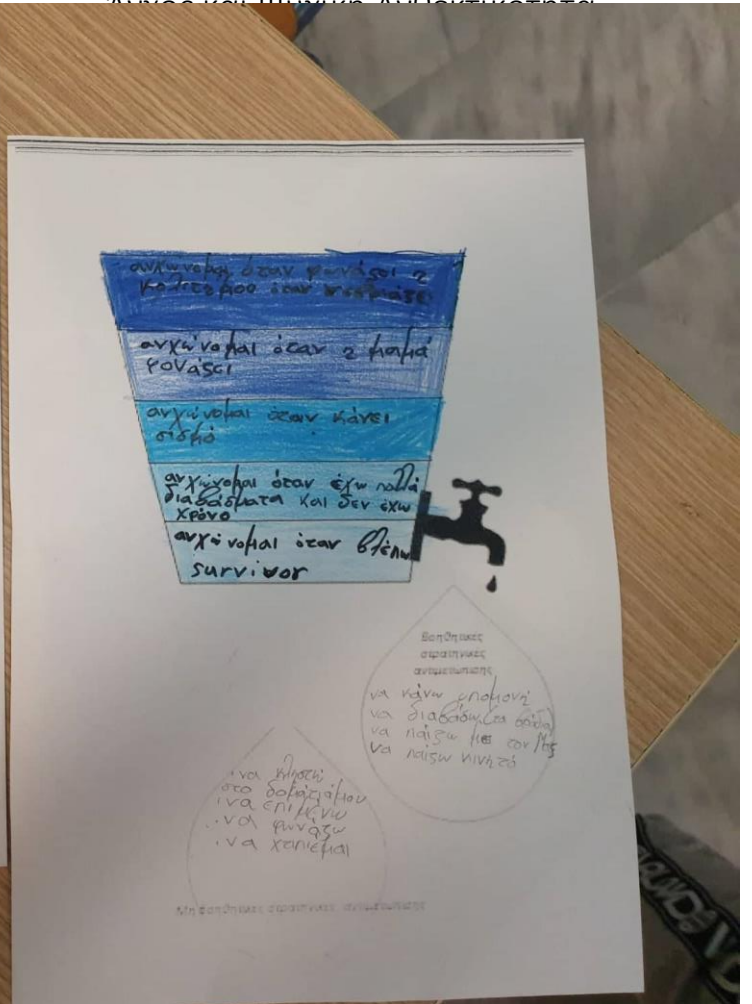 Άγχος και Ψυχική Ανθεκτικότητα
ανχώνομαι όταν φωνάζει η
όταν
ανχώνομαι όταν η μαμά
φονάζει
ανχώνομαι όταν κάνει
σισμό
ανχώνομαι όταν έχω πολλά
διαβάσματα και δεν έχω
χρόνο
ανχώνομαι όταν βλέπω
survivor
Βοηθητικές
στρατηγικές
αντιμετώπισης
να κάνω υπομονή
να διαβάσω τα
να παίξω με τον
να παίξω κινητό
.να κληστώ
στο δομάτιόμου
.να επιμένω
.να φωνάζω
.να χτυπιέμαι
Μη βοηθητικές στρατηγικές αντιμετώπισης